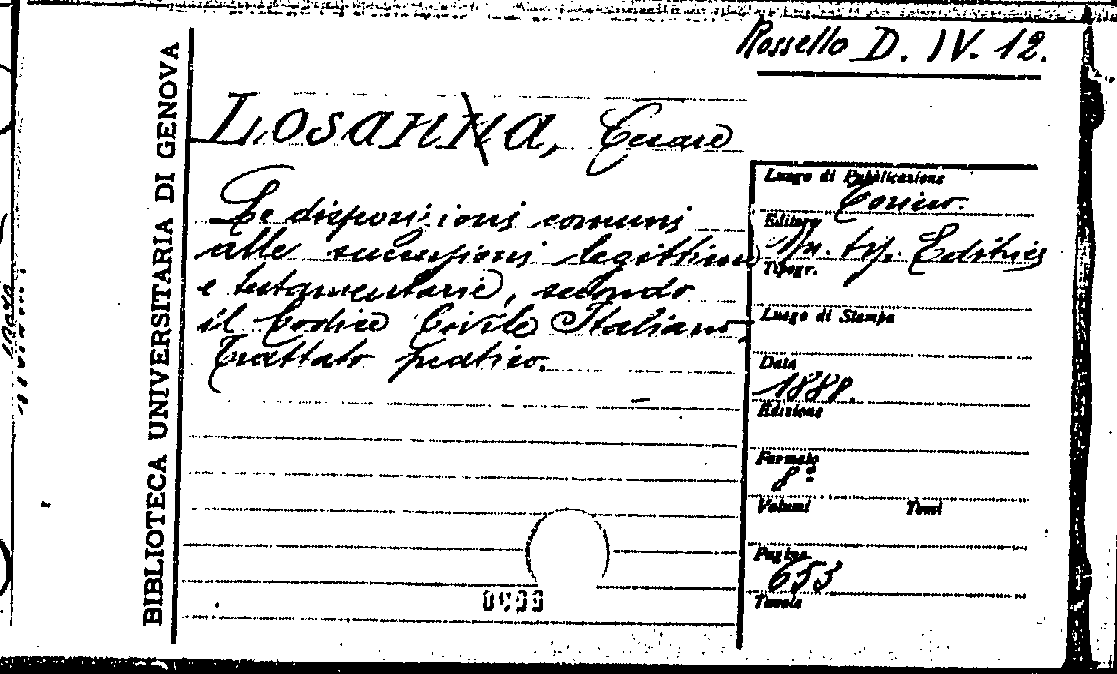 Rossello D. IV. 12.
BIBLIOTECA UNIVERSITARIA DI GENOVA
LOSANNA, Cesare
Le disposizioni comuni
alle successioni legittime
e testamentarie, secondo
il Codice Civile Italiano,
Trattato pratico.
Luogo di Pubblicazione
Torino.
Editore
Un. tip. Editrice
Tipogr.
Luogo di Stampa
Data
1888.
Edizione
Formato
8º
Volumi Tomi
Pagine
653
Tavole